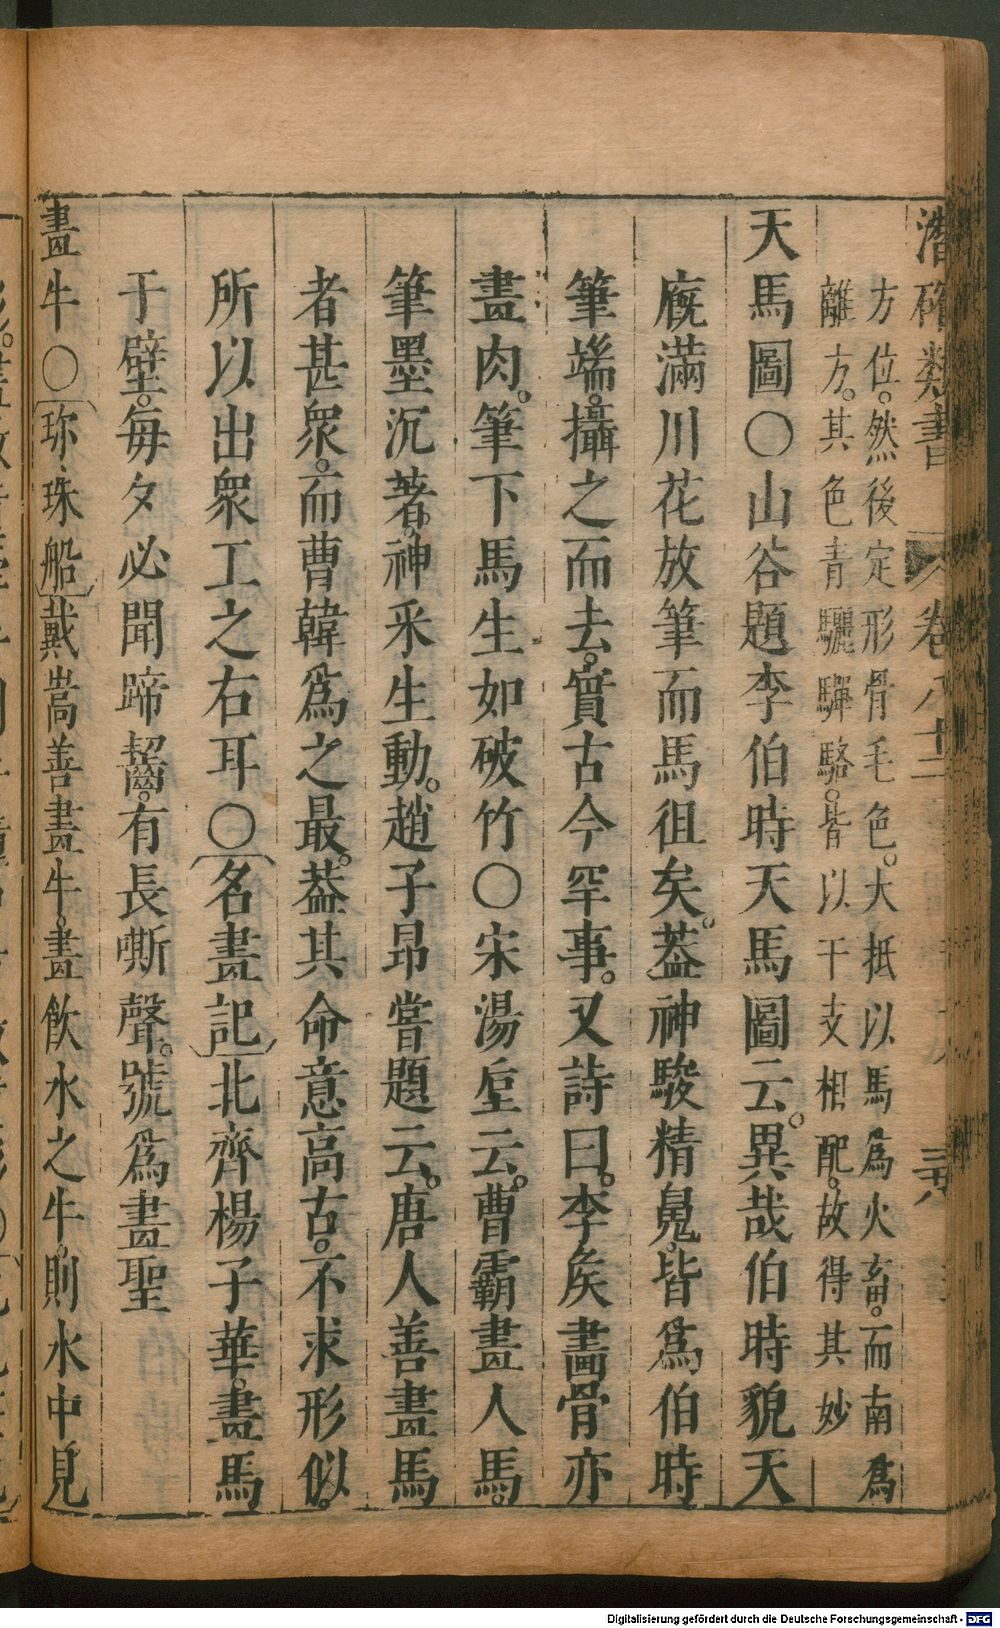 潛確類書 卷八十二
方位。然後定形骨毛色。大抵以馬爲火畜。而南爲
離方。其色青驪驒駱。皆以干支相配。故得其妙
天馬圖○山谷題李伯時天馬圖云。異哉伯時貌天
廐滿川花放筆而馬徂矣。葢神駿精䰟。皆爲伯時
筆端。攝之而去。實古今罕事。又詩曰。李矦畫骨亦
畫肉。筆下馬生如破竹○宋湯垕云。曹霸畫人馬。
筆墨沉著。神采生動。趙子昂嘗題云。唐人善畫馬
者甚衆。而曹韓爲之最。葢其命意高古。不求形似。
所以出衆工之右耳○名畫記北齊楊子華。畫馬
于壁。每夕必聞蹄齧。有長嘶聲。號爲畫聖
畫牛○珎珠船戴嵩善畫牛。畫飲水之牛。則水中見
Digitalisierung gefördert durch die Deutsche Forschungsgemeinschaft - DFG